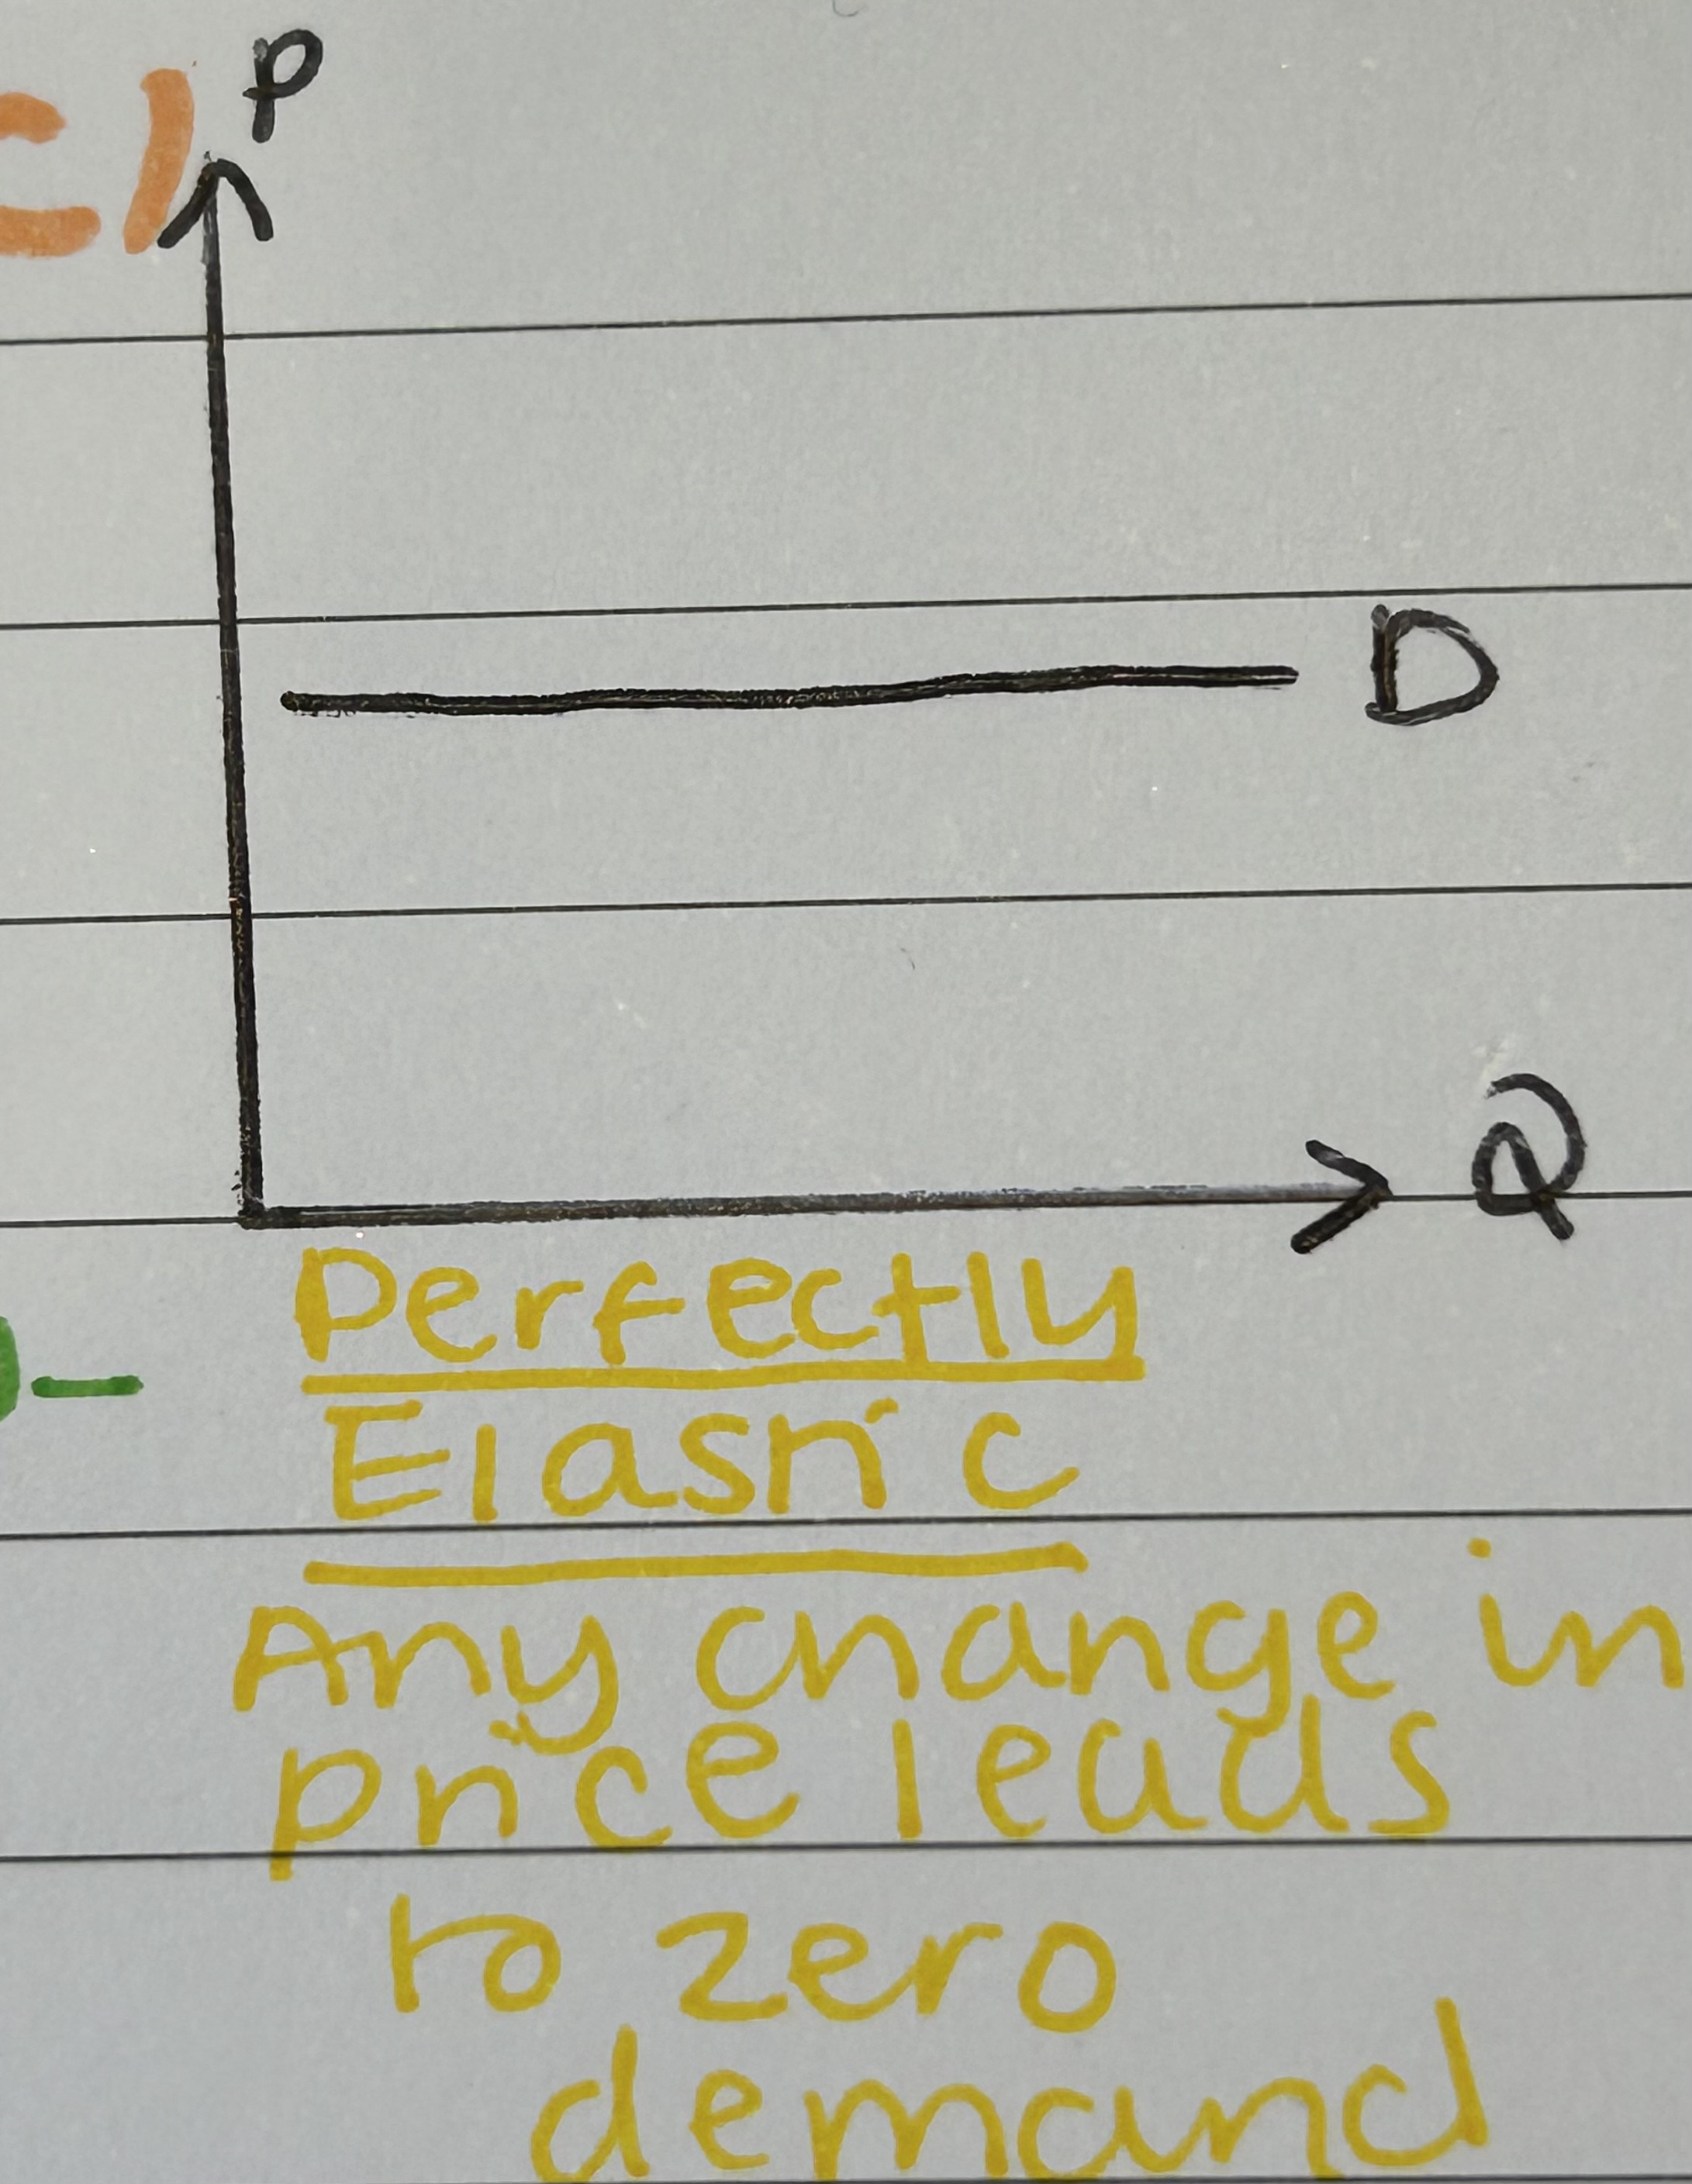 P
D
Q
Perfectly
Elastic
Any change in
price leads
to zero
demand